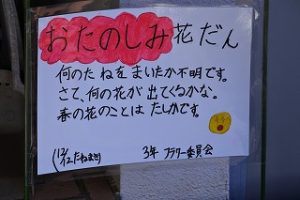 おたのしみ花だん
何のたねをまいたか不明です。
さて、何の花が出てくるかな。
春の花のことはたしかです。
(12/12たねまき)
3年 フラワー委員会